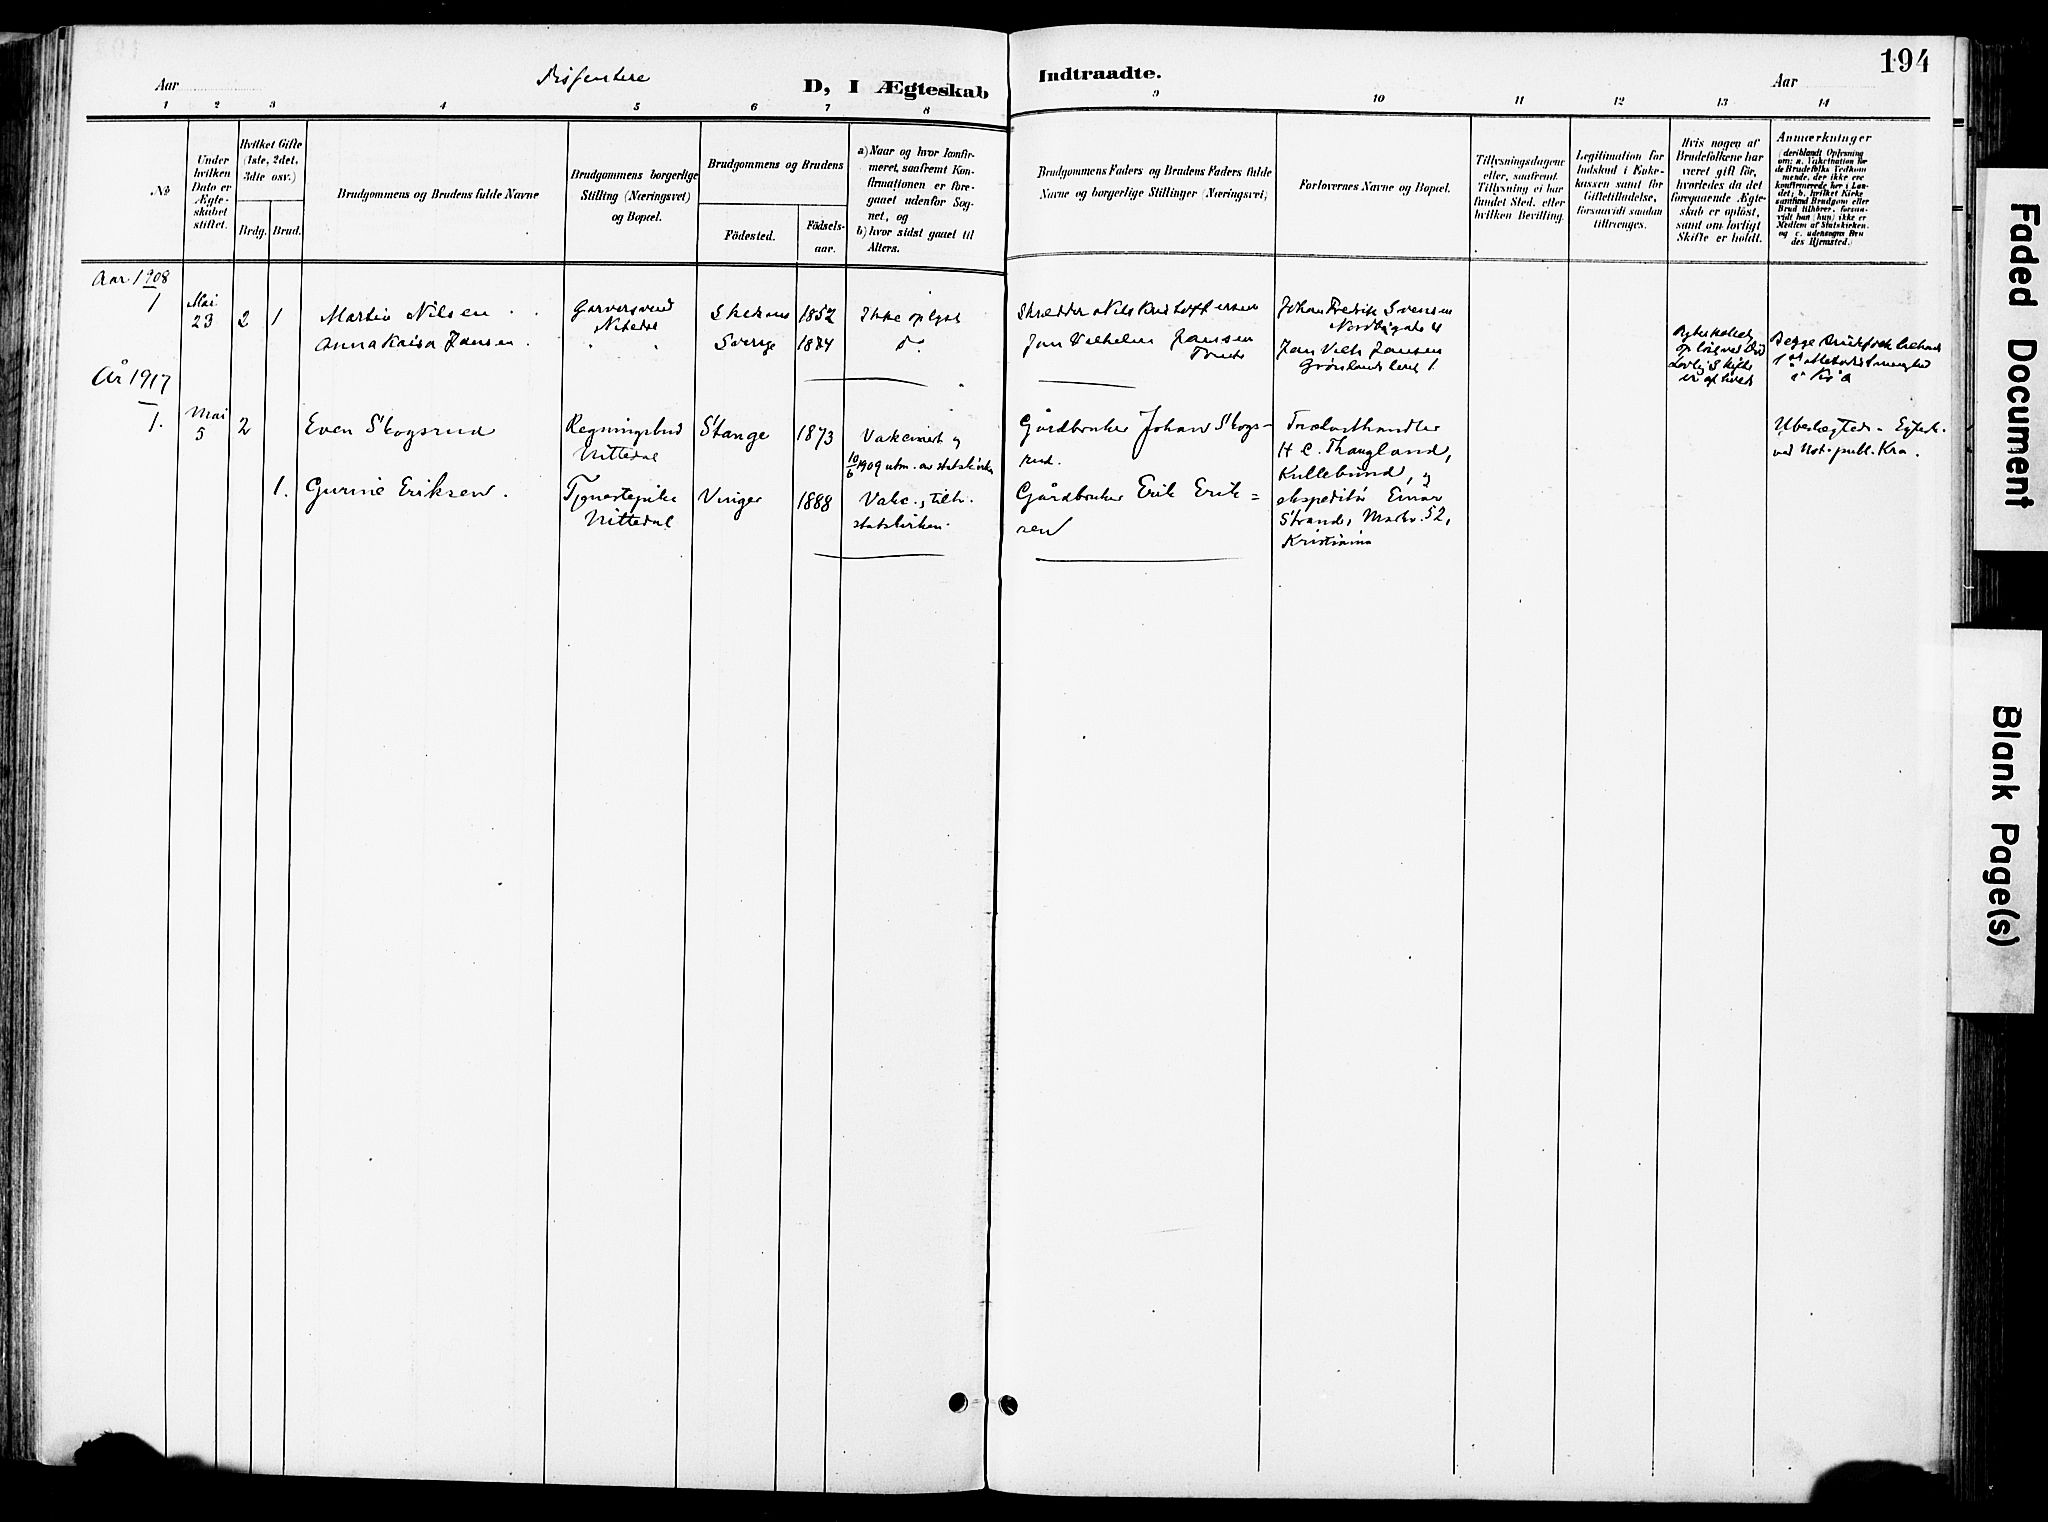 194
Dissentere
Aar
D, I Ægteskab
Indtraadte.
Aar
1 2 3 4 5 6 7 8 9 10 11 12 13 14
No
Under
hvilken
Dato er
Ægte-
skabet
stiftet.
Hvilket Gifte
(1ste, 2det,
3die osv.)
Brdg.
Brud.
Brudgommens og Brudens fulde Navne
Brudgommens borgerlige
Stilling (Næringsvei)
og Bopæl.
Brudgommens og Brudens
Fødested.
Fødsels-
aar.
a) Naar og hvor konfir-
meret, saafremt Kon-
firmationen er fore-
gaaet udenfor Sog-
net, og
b) hvor sidst gaaet til
Alters.
Brudgommens Faders og Brudens Faders fulde
Navne og borgerlige Stillinger (Næringsvei)
Forlovernes Navne og Bopæl.
Tillysningsdagene
eller, saafremt
Tillysning ei har
fundet Sted, efter
hvilken Bevilling.
Legitimation for
Indskud i Enke-
kassen samt for
Giftetilladelse,
forsaavidt saadan
tiltrænges.
Hvis nogen af
Brudefolkene har
været gift før,
hvorledes da det
foregaaende Ægte-
skab er opløst,
samt om lovligt
Skifte er holdt.
Anmærkninger
(deriblandt Oplysning
om: a. Vakcination for
de Brudefolks Vedkom
mende, der ikke ere
konfirmerede her i Lan-
det; b. hvilket Kirke
samfund Brudgom eller
Brud tilhører, forsaa-
vidt han (hun) ikke er
Medlem af Statskirken,
og c. udensogns Bru
des Hjemsted.)
Aar 1908
1
Mai
23
2
1
Martin Nilsen
Garversvend
Nitedal
1852
Ikke oplyst
Skrædder Nils Kristoffersen
Johan Fredrik Svensen
Anna Kaisa Jansen
Sverige
1874
Do
Jan Vilhelm Jansen
Jan Vilh Jansen
Grønlandsleret 1
Ægteskabet
opløst ved Død
Lovligt Skifte
er afholdt
Begge
År 1917
1.
Mai
5
2
Even Skogsrud
Regningsbud
Nittedal
Stange
1873
Vakcinert og
10/6 1909 utm. av statskirken
Gårdbruker Johan Skogs-
rud.
Trælasthandler
H C. Thaugland,
Kullebund, og
Ubeslægtede - Egtesk.
ved Not. publ. Kra.
1.
Gurine Eriksen.
Tjenestepike
Nittedal
Vinger
1888
Vakc., tilh.
statskirken.
Gårdbruker Erik Erik=
sen
ekspeditør Einar
Strand, Markv. 52,
Kristiania
Faded Document
Blank Page(s)